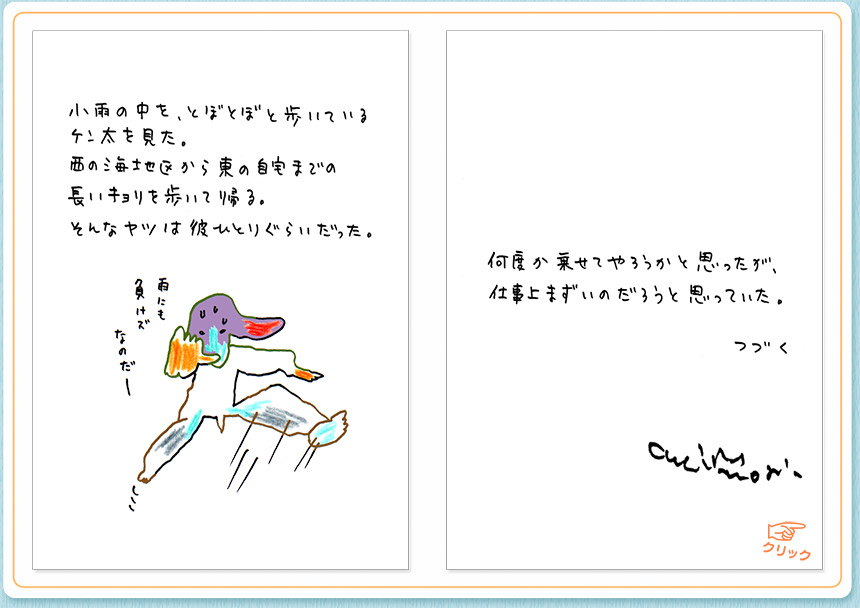 小雨の中を、とぼとぼと歩いている
ケン太を見た。
西の海地区から東の自宅までの
長いキョリを歩いて帰る。
そんなヤツは彼ひとりぐらいだった。
雨にも
負けズ
なのだー
何度か乗せてやろうかと思ったが、
仕事上まずいのだろうと思っていた。
つづく
クリック